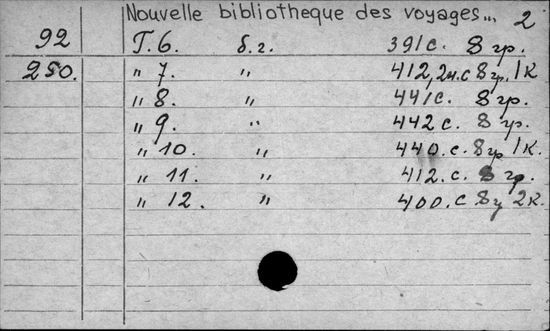 Nouvelle bibliotheque des voyages... 2
92 Т. 6. б. г. 391 с. 8 гр.
250. " 7. " 412, 2н. с 8 гр. 1 К
" 8. " 441 с. 8 гр.
" 9. " 442 с. 8 гр.
" 10. " 440. с. 8 гр 1 К.
" 11. " 412. с. 8 гр.
" 12. " 400. с 8 2 К.